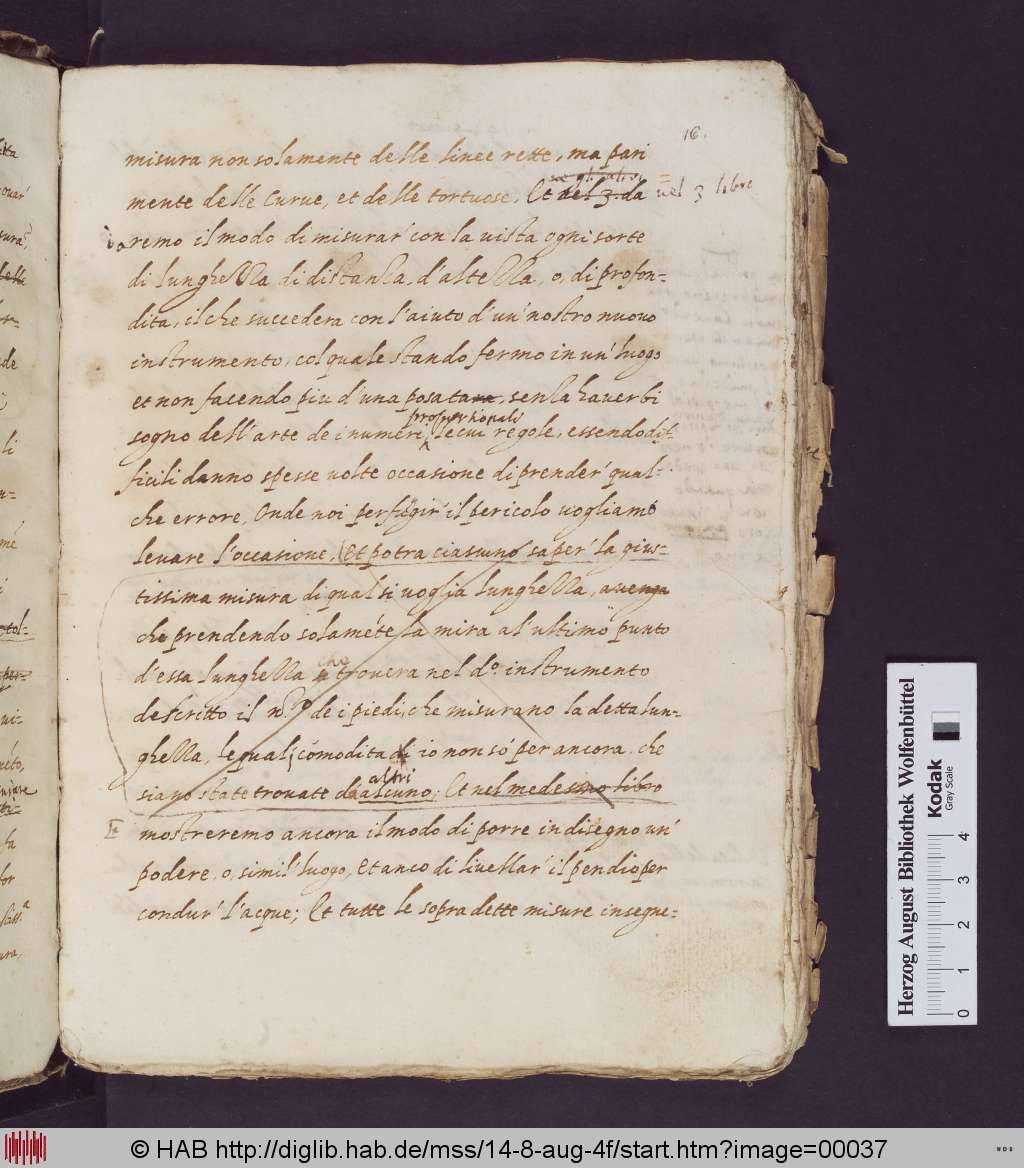 16.
misura non solamente delle linee rette, ma pari
mente delle curve, et delle tortuose. Et del 3. da nel 3 libro
remo il modo di misurar' con la vista ogni sorte
di lunghezza, di distanza, d'altezza, o, di profon-
dita, il che succedera con l'aiuto d'un' nostro nuovo
instrumento, col quale stando fermo in un' luogo
et non facendo piu d'una posata, senza haver bi
proportionali
sogno dell'arte de i numeri, le cui regole, essendo dif-
ficili danno spesse volte occasione di prender' qual-
che errore, Onde noi per fugir' il pericolo vogliamo
levare l'occasione. Et potra ciascuno saper' la gius-
tissima misura di qual si voglia lunghezza, avenga
che prendendo solaméte la mira al ultimo punto
d'essa lunghezza trovera nel d.º instrumento
descritto il n.º de i piedi, che misurano la detta lun-
ghezza, le quali cómodita io non só per ancora, che
altri
siano state trovate da alcuno; Et nel medesimo libro
Et mostreremo ancora il modo di porre in disegno un'
podere, o, simil' luogo, Et anco di livellar' il pendio per
condur' l'acque; Et tutte le sopra dette misure insegne-
Herzog August Bibliothek Wolfenbüttel
Kodak
Gray Scale
0 1 2 3 4
© HAB http://diglib.hab.de/mss/14-8-aug-4f/start.htm?image=00037